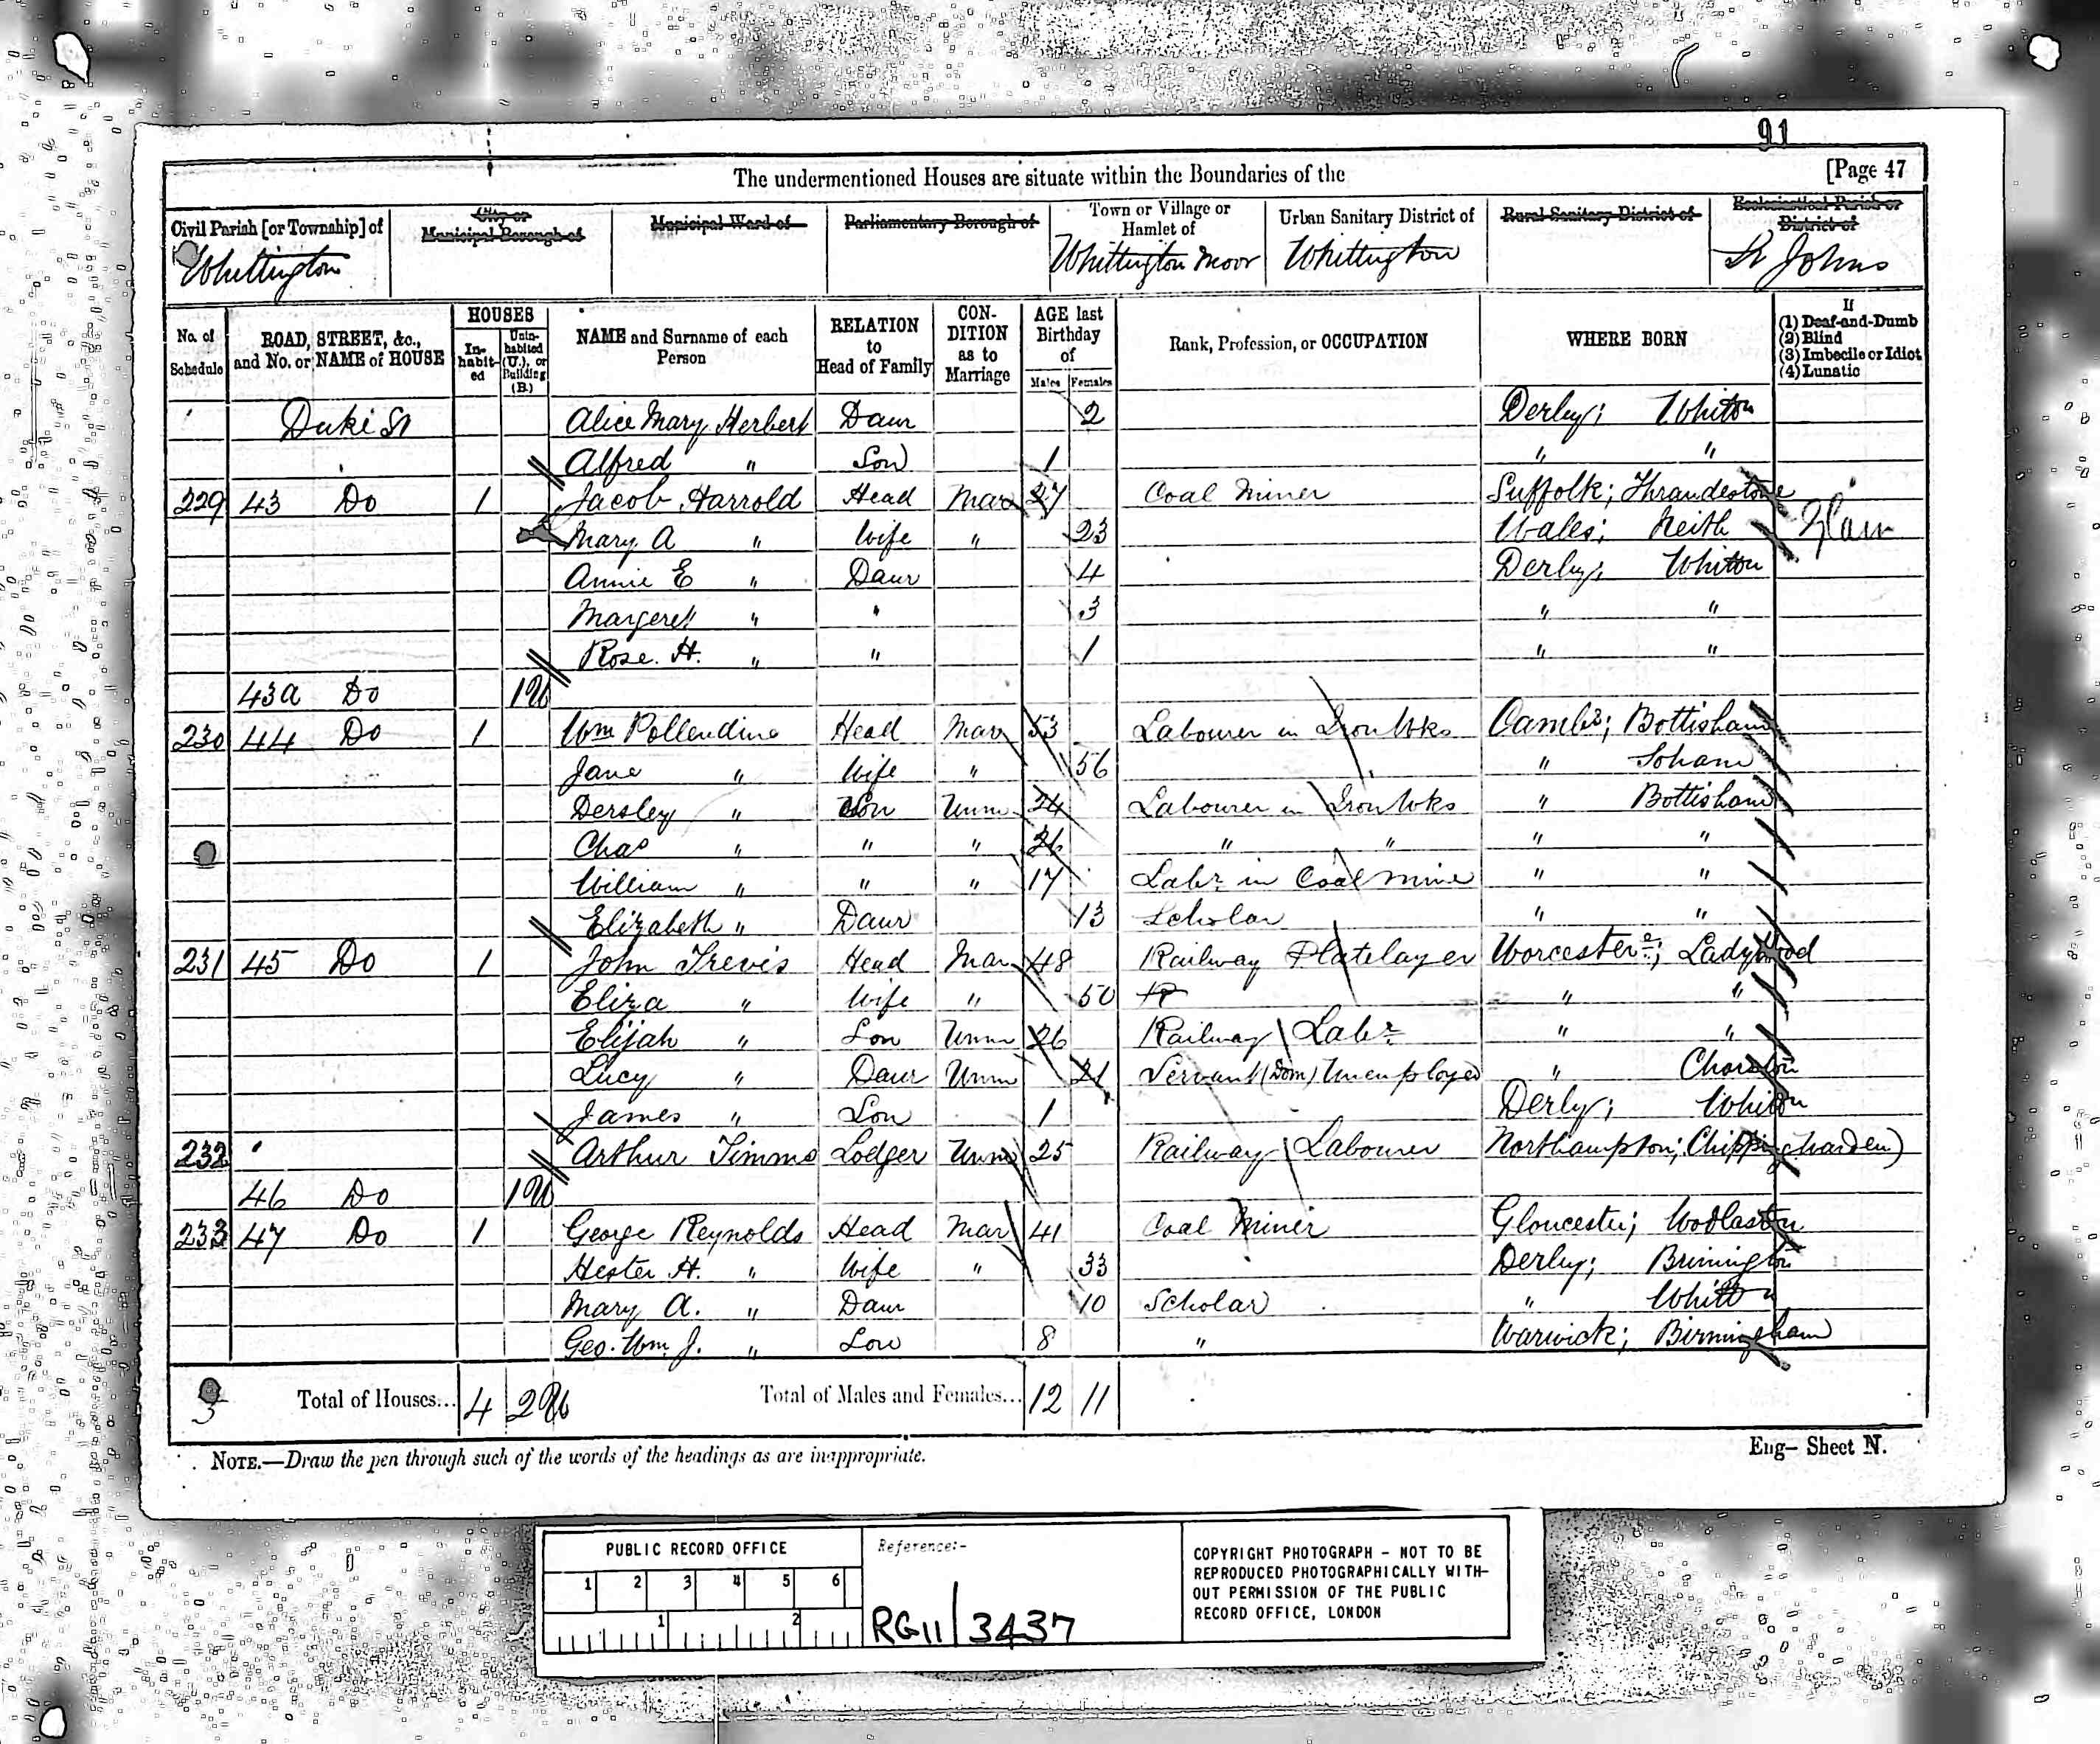 91
The undermentioned Houses are situate within the Boundaries of the [Page 47
Civil Parish [or Township] of City or Municipal Borough of Municipal Ward of Parliamentary Borough of Town or Village or Hamlet of Urban Sanitary District of Rural Sanitary District of Ecclesiastical Parish or District of
Whittington Whittington Moor Whittington St Johns
No. of Schedule ROAD, STREET, &c., and No. or NAME of HOUSE HOUSES Inhabited Uninhabited (U.), or Building (B.) NAME and Surname of each Person RELATION to Head of Family CONDITION as to Marriage AGE last Birthday of Males Females Rank, Profession, or OCCUPATION WHERE BORN If (1) Deaf-and-Dumb (2) Blind (3) Imbecile or Idiot (4) Lunatic
Duke St Alice Mary Herbert Daur 2 Derby; Whitton
Alfred " Son 1 " "
229 43 Do 1 Jacob Harrold Head Mar 27 Coal Miner Suffolk; Thrandestone
Mary A " Wife " 23 Wales; Neith Glam
Annie E " Daur 4 Derby; Whitton
Margerett " " 3 " "
Rose. H. " " 1 " "
43a Do 1U
230 44 Do 1 Wm Pollendine Head Mar 53 Labourer in Iron Wks Cambs; Bottisham
Jane " Wife " 56 " Soham
Dersley " Son Unm 24 Labourer in Iron Wks " Bottisham
Chas " " " 26 " " " "
William " " " 17 Labr in Coal mine " "
Elizabeth " Daur 13 Scholar " "
231 45 Do 1 John Trevis Head Mar 48 Railway Platelayer Worcester; Ladywood
Eliza " Wife " 50 " "
Elijah " Son Unm 26 Railway Labr " "
Lucy " Daur Unm 21 Servant (Dom) Unemployed "
James " Son 1 Derby; Whitton
232 Arthur Timms Lodger Unm 25 Railway Labourer Northampton; Chipping Warden)
46 Do 1U
233 47 Do 1 George Reynolds Head Mar 41 Coal Miner Gloucester; Woolaston
Hester H. " Wife " 33 Derby; Brimington
Mary A. " Daur 10 Scholar " Whitton
Geo. Wm. J. " Son 8 " Warwick; Birmingham
3 Total of Houses... 4 2U Total of Males and Females... 12 11
NOTE.—Draw the pen through such of the words of the headings as are inappropriate. Eng— Sheet N.
PUBLIC RECORD OFFICE
1 2 3 4 5 6
1 2
Reference:-
RG11/3437
COPYRIGHT PHOTOGRAPH - NOT TO BE
REPRODUCED PHOTOGRAPHICALLY WITH-
OUT PERMISSION OF THE PUBLIC
RECORD OFFICE, LONDON